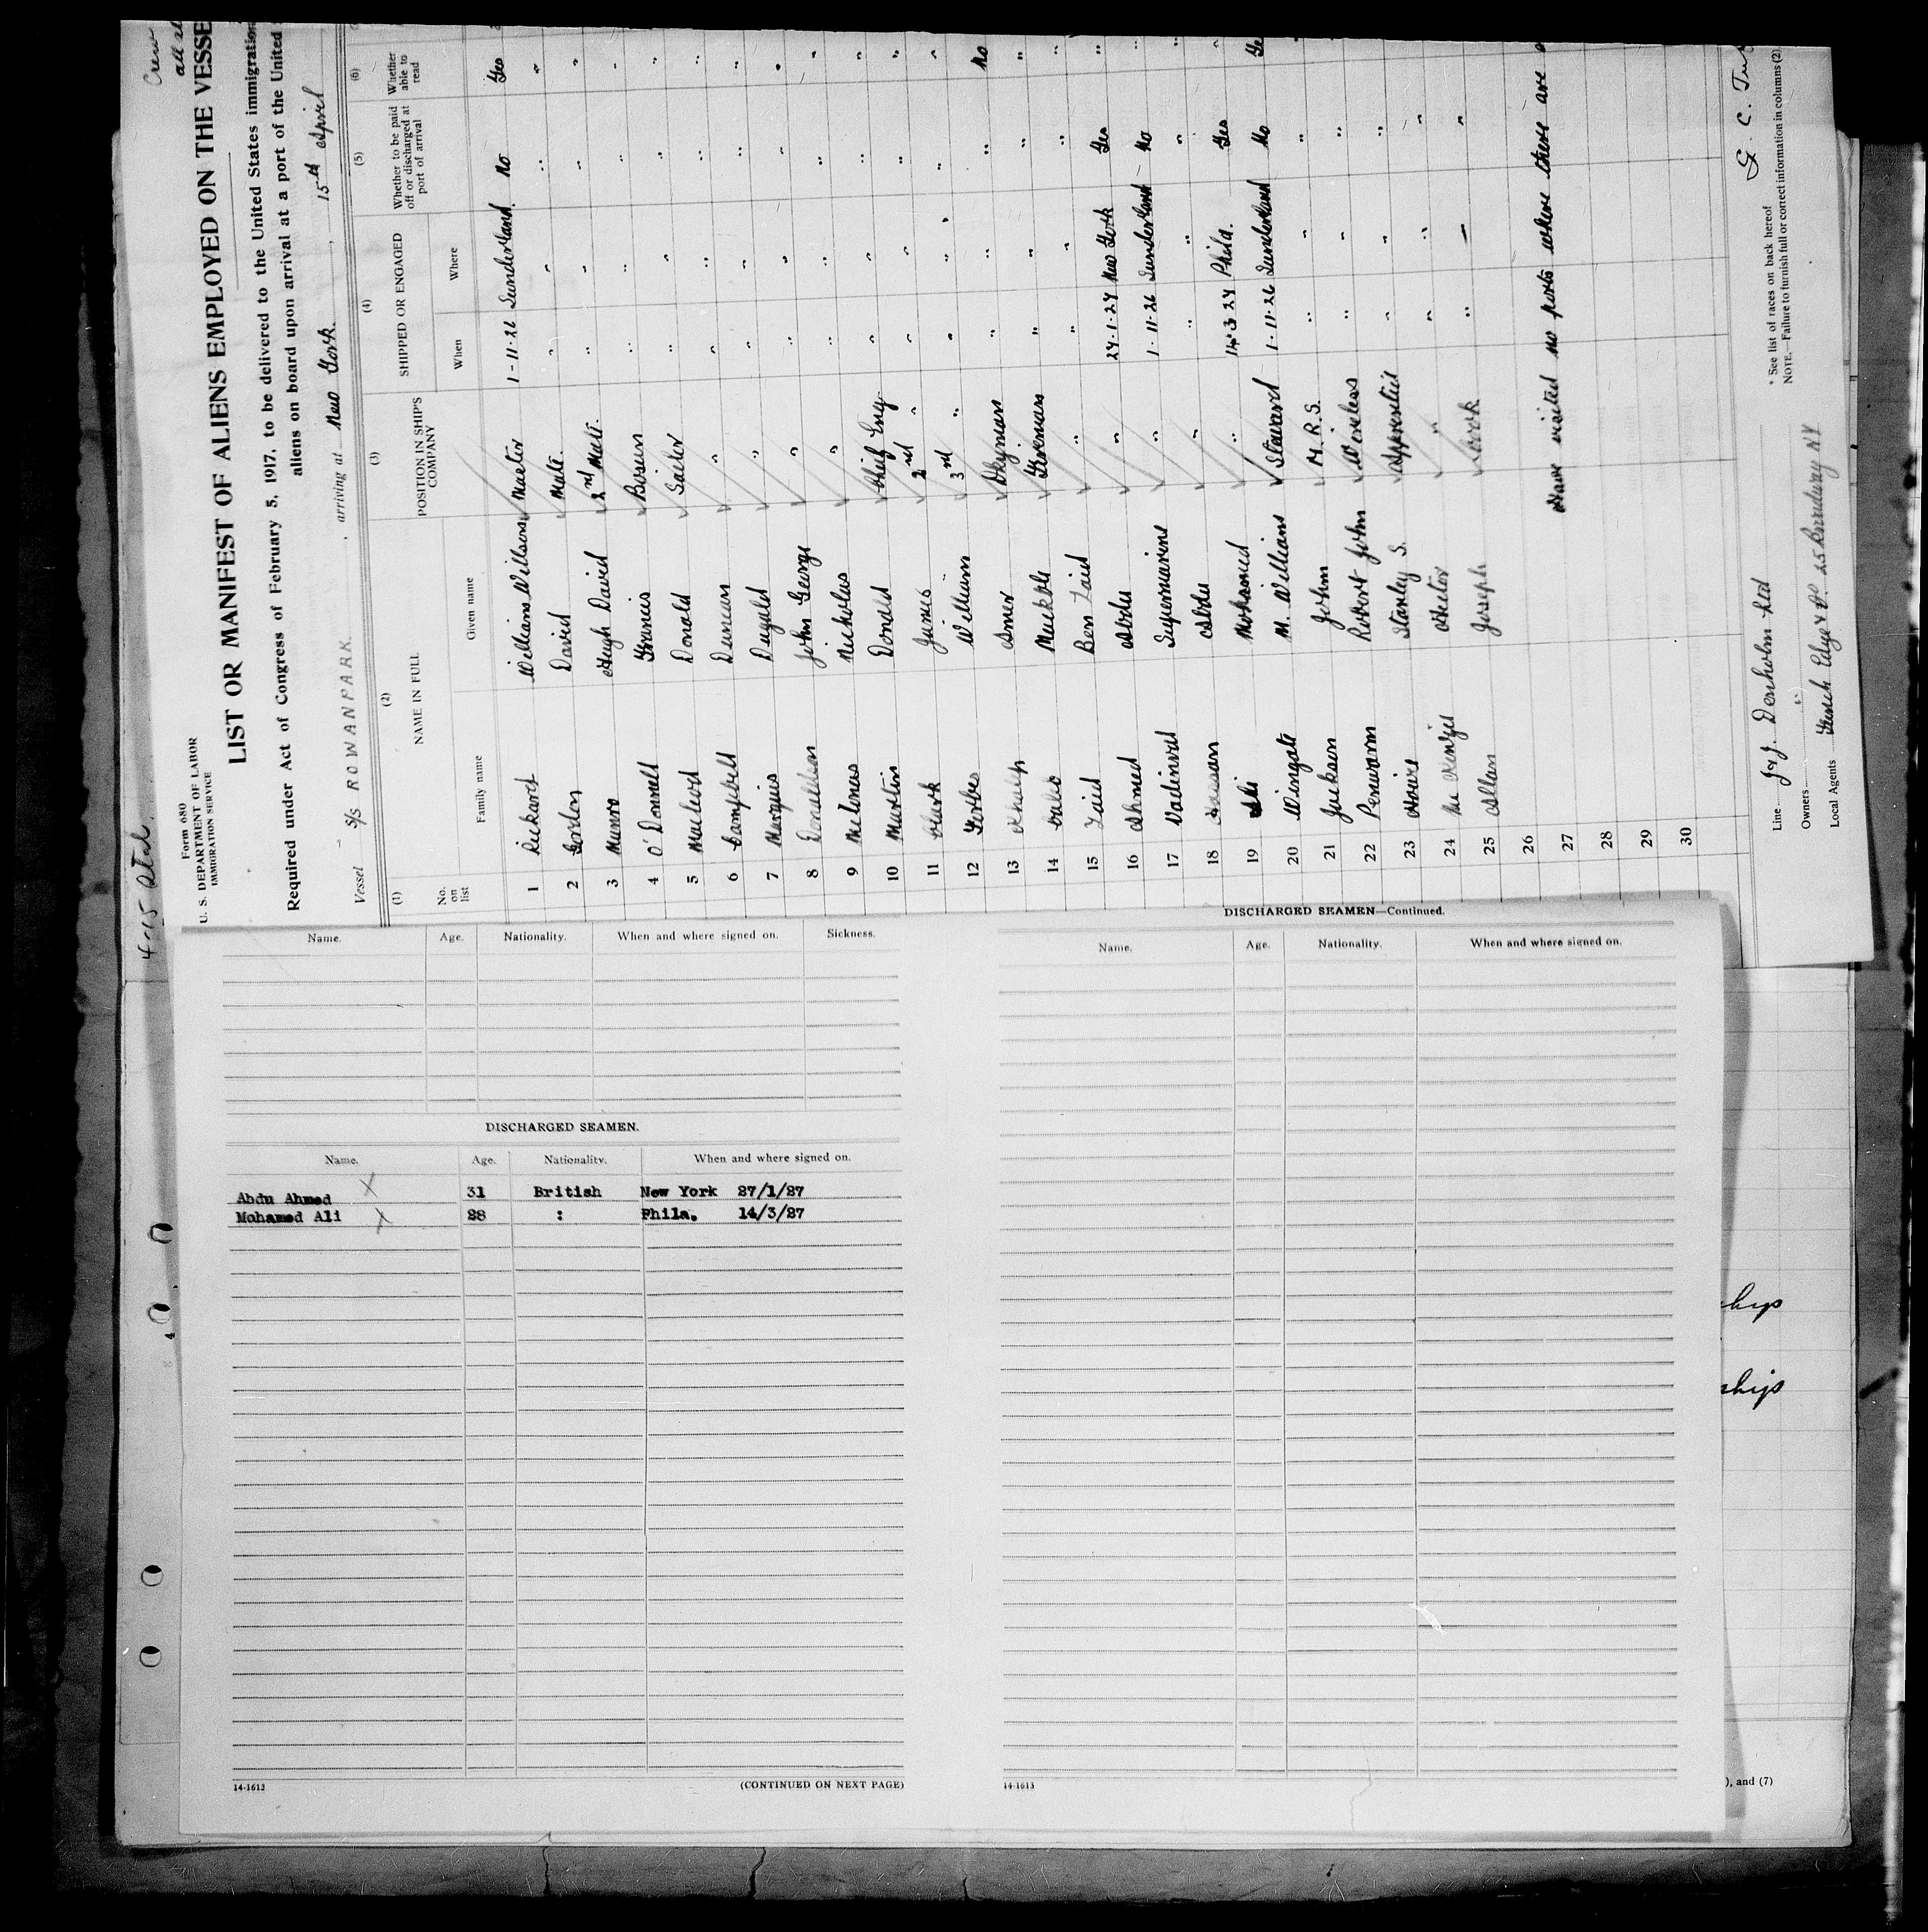 4-15 atd.
Crew
Form 680
U. S. DEPARTMENT OF LABOR
IMMIGRATION SERVICE
LIST OR MANIFEST OF ALIENS EMPLOYED ON THE VESSE
Required under Act of Congress of February 5, 1917, to be delivered to the United States immigration
aliens on board upon arrival at a port of the United
Vessel S/S ROWANPARK. , arriving at New York. , 15th April
(1) (2) (3) (4) (5) (6)
No. on list
NAME IN FULL
Family name Given name
POSITION IN SHIP'S COMPANY
SHIPPED OR ENGAGED
When Where
Whether to be paid off or discharged at port of arrival
Whether able to read
1 Rickard William Willson Master 1-11-26 Sunderland. No Yes
2 Gorton David Mate. " " " "
3 Munro Hugh David 2nd Mate. " " " "
4 O'Donnell Francis Bosun " " " "
5 Macleod Donald Sailor " " " "
6 Campbell Duncan " " " " "
7 Marquis Dugald " " " " "
8 Donaldson John George " " " " "
9 McInnes Nicholas " " " " "
10 Martin Donald Chief Eng. " " " "
11 Clark James 2nd " " " " "
12 Forbes William 3rd " " " " "
13 Amer Dkyman " " " No
14 Fireman " " " "
15 Zaid Ben Zaid " " " " "
16 Ahmed Abdu " 27-1-27 New York Yes "
17 " 1-11-26 Sunderland No "
18 Hassan Abdu " " " " "
19 Ali Mohamed " 14-3-27 Phila. Yes "
20 Wingate M. William Steward 1-11-26 Sunderland No Ye
21 Jackson John M.R.S. " " "
22 Penwarm Robert John Wireless " " "
23 Howe Stanley S. Apprentice " " "
24 McKenzie Hector " " " "
25 Allan Joseph Cook " — "
26
27 Have visited no ports where there are
28
29
30
Line J & J. Denholm Ltd
Owners "
Local Agents Funch Edye & Co 25 Broadway NY
* See list of races on back hereof
NOTE.—Failure to furnish full or correct information in columns (2)
Name. Age. Nationality. When and where signed on. Sickness.
DISCHARGED SEAMEN.
Name. Age. Nationality. When and where signed on.
Abdu Ahmed X 31 British New York 27/1/27
Mohamed Ali X 28 : Phila. 14/3/27
14-1613 (CONTINUED ON NEXT PAGE)
DISCHARGED SEAMEN—Continued.
Name. Age. Nationality. When and where signed on.
14-1613
ship
ship
), and (7)